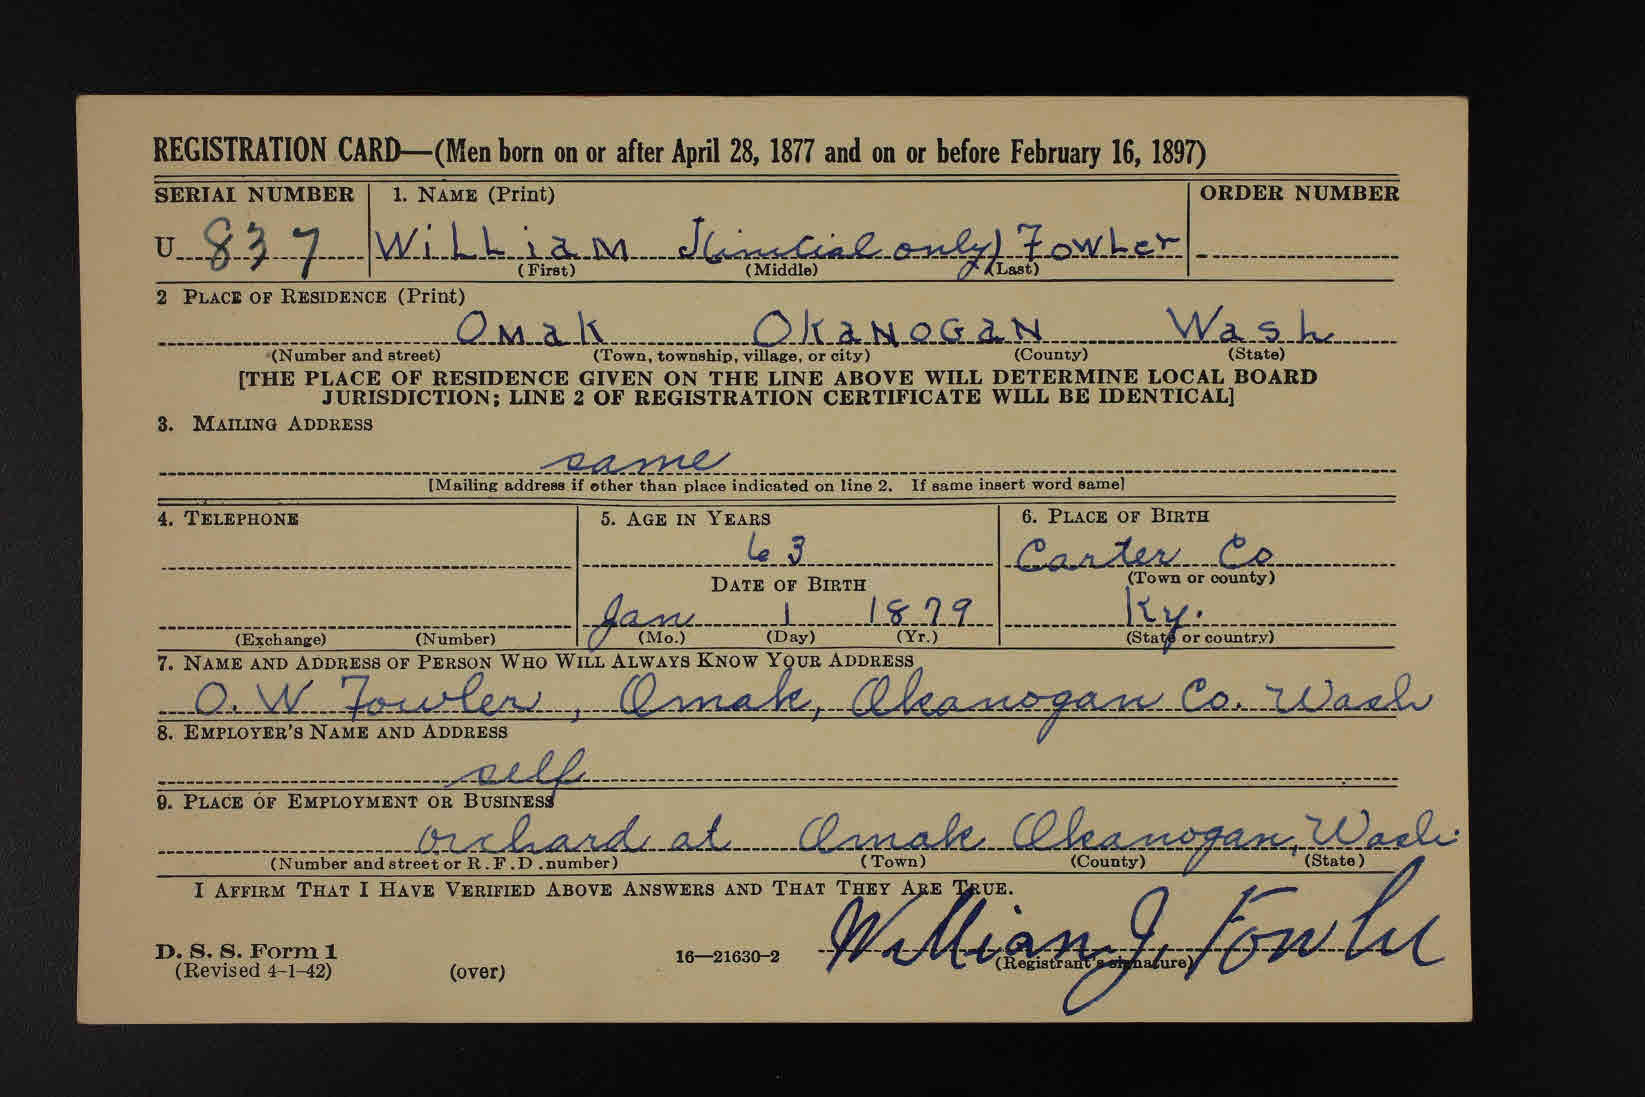 REGISTRATION CARD—(Men born on or after April 28, 1877 and on or before February 16, 1897)
SERIAL NUMBER 1. NAME (Print) ORDER NUMBER
U 837 William J (initial only) Fowler
(First) (Middle) (Last)
2 PLACE OF RESIDENCE (Print)
Omak Okanogan Wash
(Number and street) (Town, township, village, or city) (County) (State)
[THE PLACE OF RESIDENCE GIVEN ON THE LINE ABOVE WILL DETERMINE LOCAL BOARD
JURISDICTION; LINE 2 OF REGISTRATION CERTIFICATE WILL BE IDENTICAL]
3. MAILING ADDRESS
same
[Mailing address if other than place indicated on line 2. If same insert word same]
4. TELEPHONE 5. AGE IN YEARS 6. PLACE OF BIRTH
63 Carter Co
DATE OF BIRTH (Town or county)
Jan 1 1879 Ky.
(Exchange) (Number) (Mo.) (Day) (Yr.) (State or country)
7. NAME AND ADDRESS OF PERSON WHO WILL ALWAYS KNOW YOUR ADDRESS
O. W Fowler, Omak, Okanogan Co. Wash
8. EMPLOYER'S NAME AND ADDRESS
self
9. PLACE OF EMPLOYMENT OR BUSINESS
orchard at Omak Okanogan, Wash.
(Number and street or R. F. D. number) (Town) (County) (State)
I AFFIRM THAT I HAVE VERIFIED ABOVE ANSWERS AND THAT THEY ARE TRUE.
William J. Fowler
D. S. S. Form 1 16—21630-2 (Registrant's signature)
(Revised 4-1-42) (over)